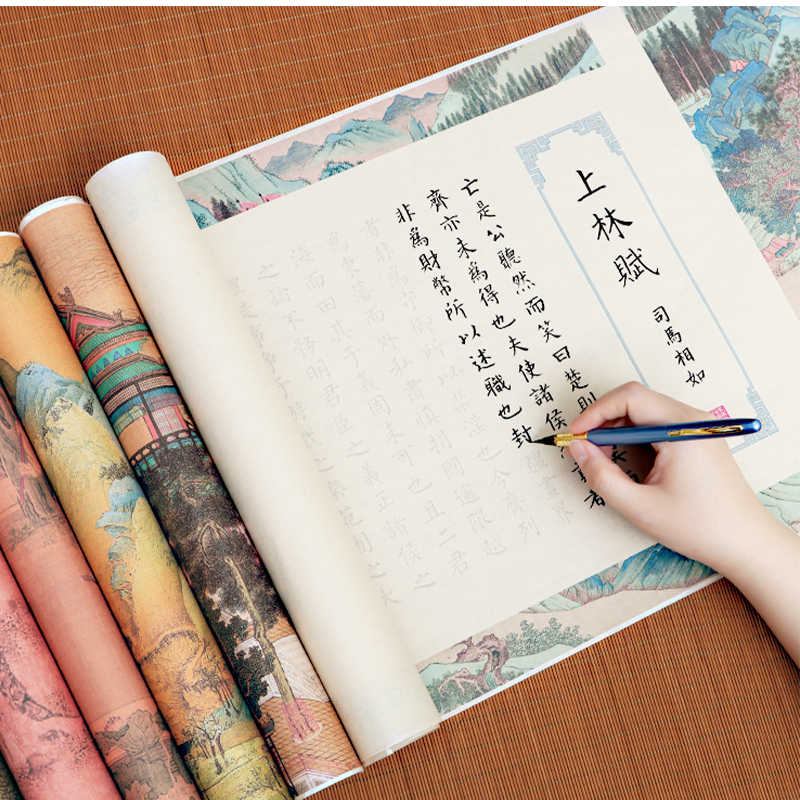 上林賦
司馬相如
亡是公聽然而笑曰楚則
齊亦未為得也夫使諸侯者
非為財幣所以述職也封疆畫界
者非為守御所以禁淫也今齊列
為東藩而外私肅慎國逾限越
海而田其于義固未可也且二君
之論不務明君臣之義正諸侯之
禮徒事爭于游戲之樂苑囿之大